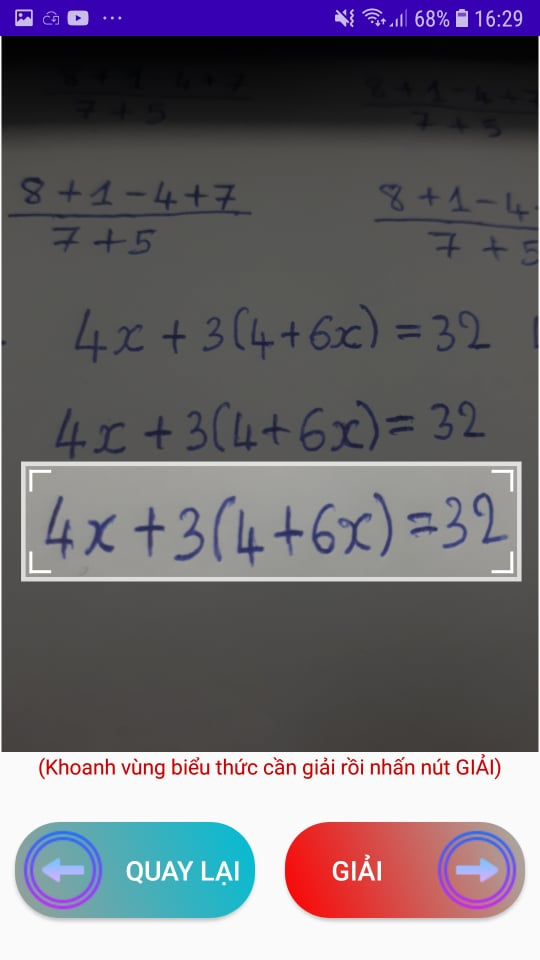 68% 16:29
8 + 1 - 4 + 7 8 + 1 - 4 + 7
7 + 5 7 + 5
8 + 1 - 4 + 7 8 + 1 - 4
7 + 5 7 + 5
4x + 3(4 + 6x) = 32
4x + 3(4 + 6x) = 32
4x + 3(4 + 6x) = 32
(Khoanh vùng biểu thức cần giải rồi nhấn nút GIẢI)
QUAY LẠI GIẢI